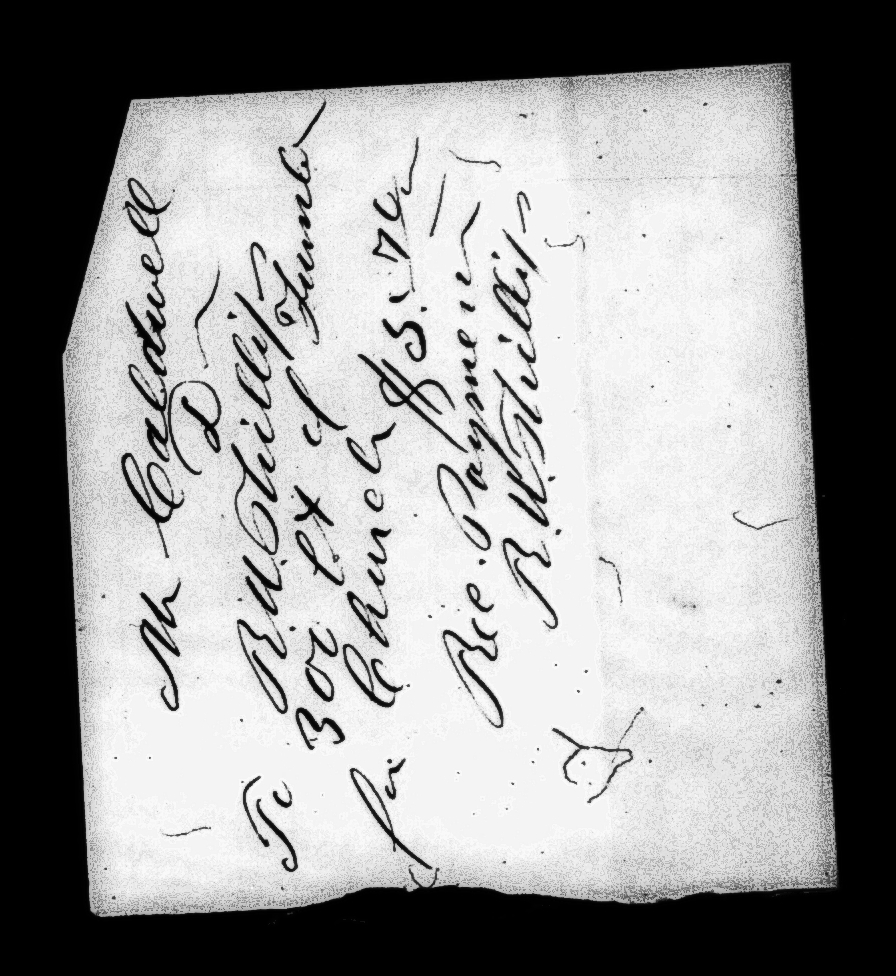 Mr Caldwell
D
To R. W. Phillips
302 ft of Lumber
for Church $5.76
Rec. Payment
R. W. Phillips